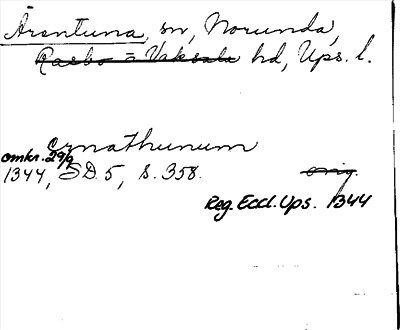 Ärentuna, sn, Norunda,
Rasbo = Vaksala hd, Ups. l.
ærnathunum
omkr. 29/9
1344, SD 5, s. 358.
orig.
Reg. Eccl. Ups. 1344